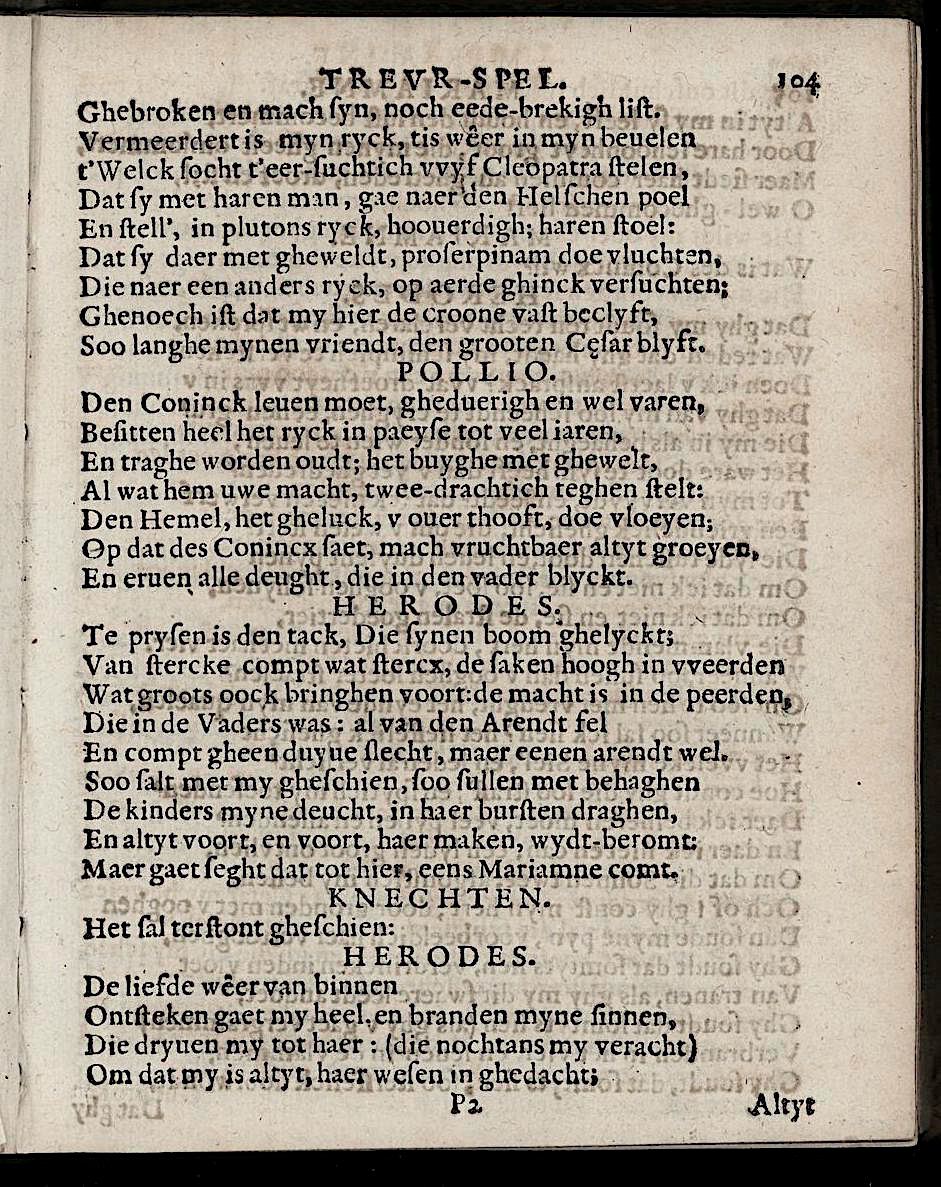 TREVR-SPEL. 104
Ghebroken en mach ſyn, noch eede-brekigh liſt.
Vermeerdert is myn ryck, tis wêer in myn beuelen
t'Welck ſocht t'eer-ſuchtich vvyf Cleopatra ſtelen,
Dat ſy met haren man, gae naer den Helſchen poel
En ſtell', in plutons ryck, hoouerdigh; haren ſtoel:
Dat ſy daer met gheweldt, proſerpinam doe vluchten,
Die naer een anders ryck, op aerde ghinck verſuchten;
Ghenoech iſt dat my hier de croone vaſt beclyft,
Soo langhe mynen vriendt, den grooten Cęſar blyft.
POLLIO.
Den Coninck leuen moet, gheduerigh en wel varen,
Beſitten heel het ryck in paeyſe tot veel iaren,
En traghe worden oudt; het buyghe met ghewelt,
Al wat hem uwe macht, twee-drachtich teghen ſtelt:
Den Hemel, het gheluck, v ouer thooft, doe vloeyen;
Op dat des Conincx ſaet, mach vruchtbaer altyt groeyen,
En eruen alle deught, die in den vader blyckt.
HERODES.
Te pryſen is den tack, Die ſynen boom ghelyckt;
Van ſtercke compt wat ſtercx, de ſaken hoogh in vveerden
Wat groots oock bringhen voort: de macht is in de peerden,
Die in de Vaders was: al van den Arendt fel
En compt gheen duyue ſlecht, maer eenen arendt wel.
Soo ſalt met my gheſchien, ſoo ſullen met behaghen
De kinders myne deucht, in haer burſten draghen,
En altyt voort, en voort, haer maken, wydt-beromt:
Maer gaet ſeght dat tot hier, eens Mariamne comt.
KNECHTEN.
Het ſal terſtont gheſchien:
HERODES.
De liefde wêer van binnen
Ontſteken gaet my heel, en branden myne ſinnen,
Die dryuen my tot haer: (die nochtans my veracht)
Om dat my is altyt, haer weſen in ghedacht;
P2 Altyt